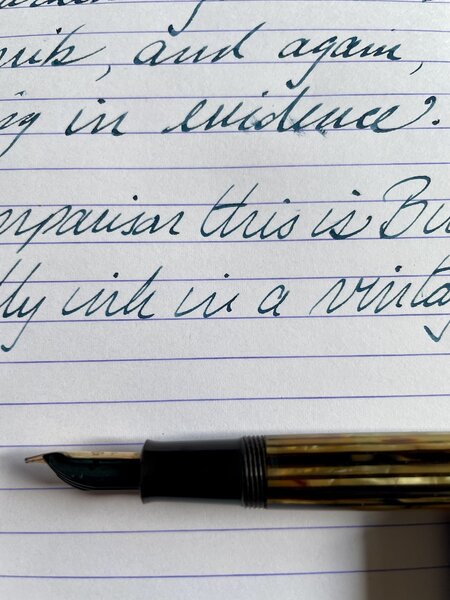 nib, and again,
ng in evidence.
mparison this is Bu
lly ink in a vintag